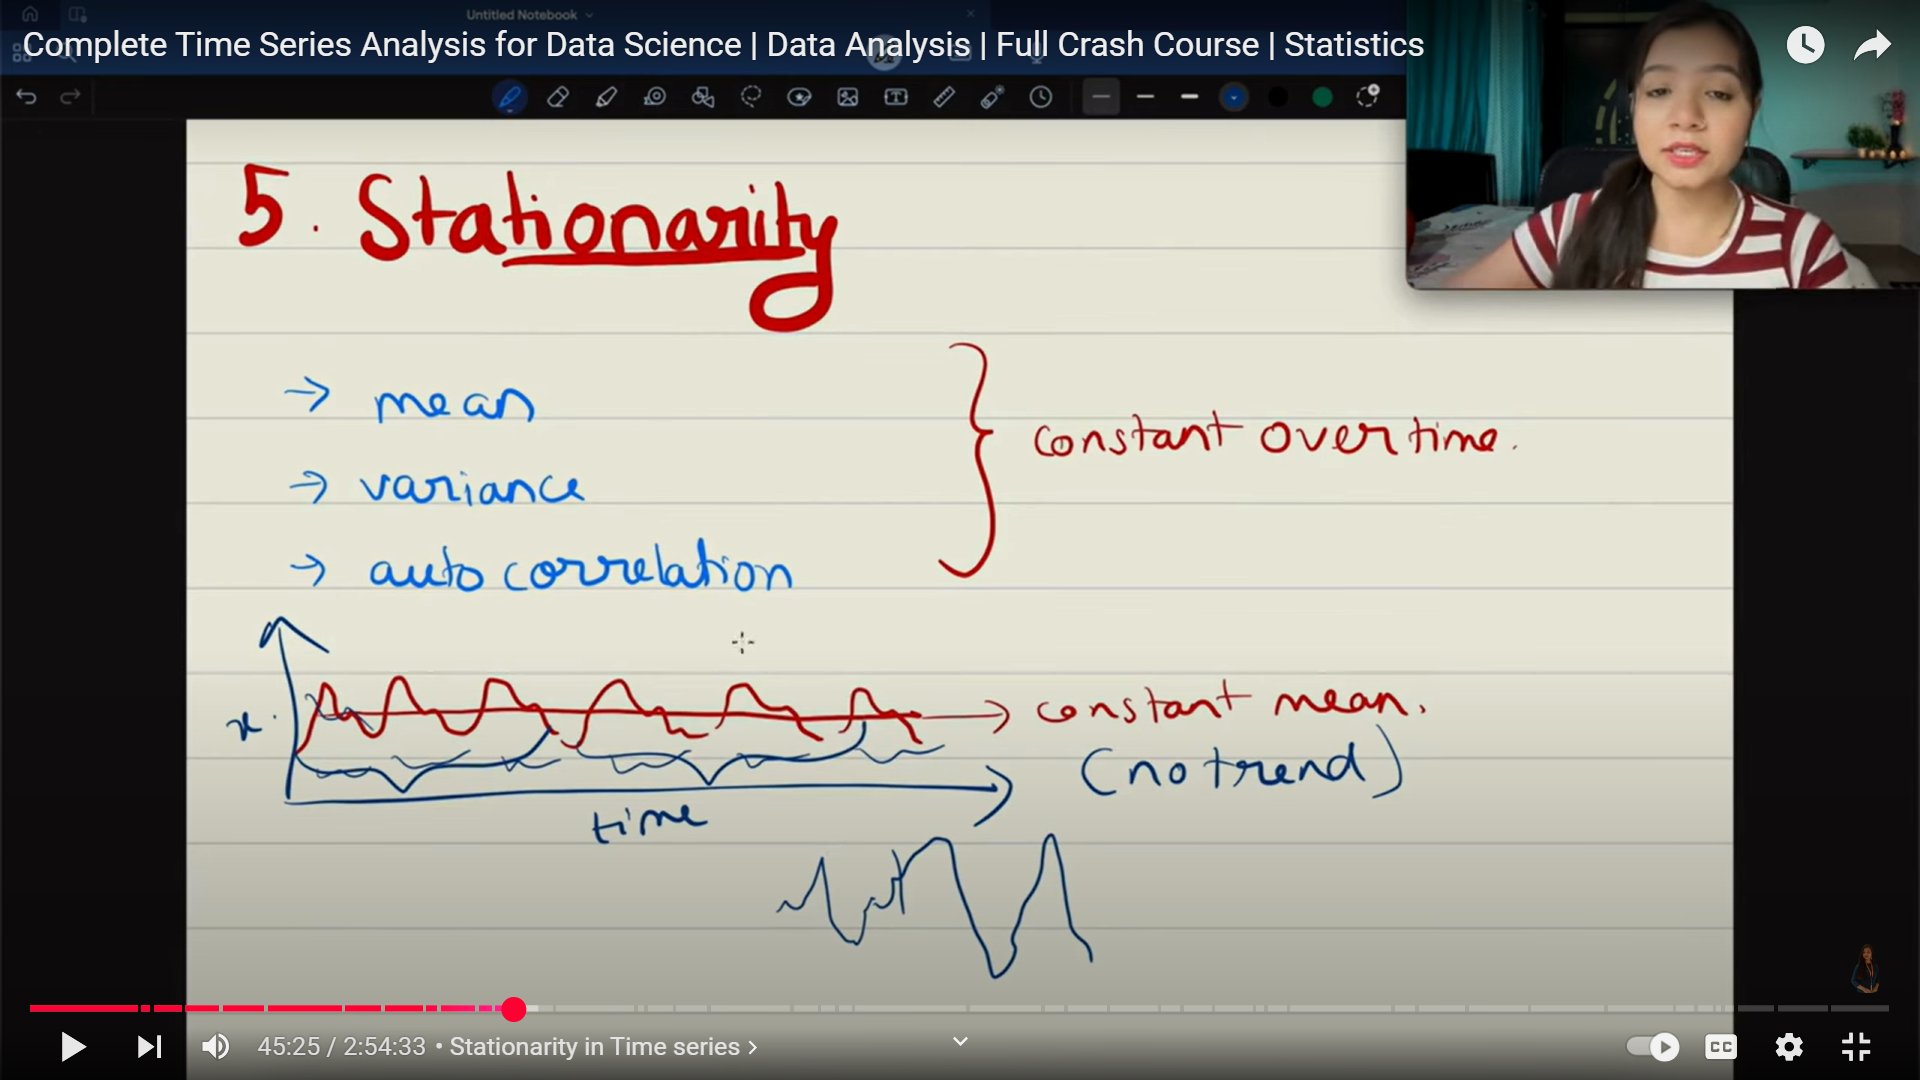 Untitled Notebook
Complete Time Series Analysis for Data Science | Data Analysis | Full Crash Course | Statistics
5. Stationarity
→ mean
→ variance
→ auto correlation
constant over time.
x
→ constant mean.
(no trend)
time
45:25 / 2:54:33 • Stationarity in Time series >
CC